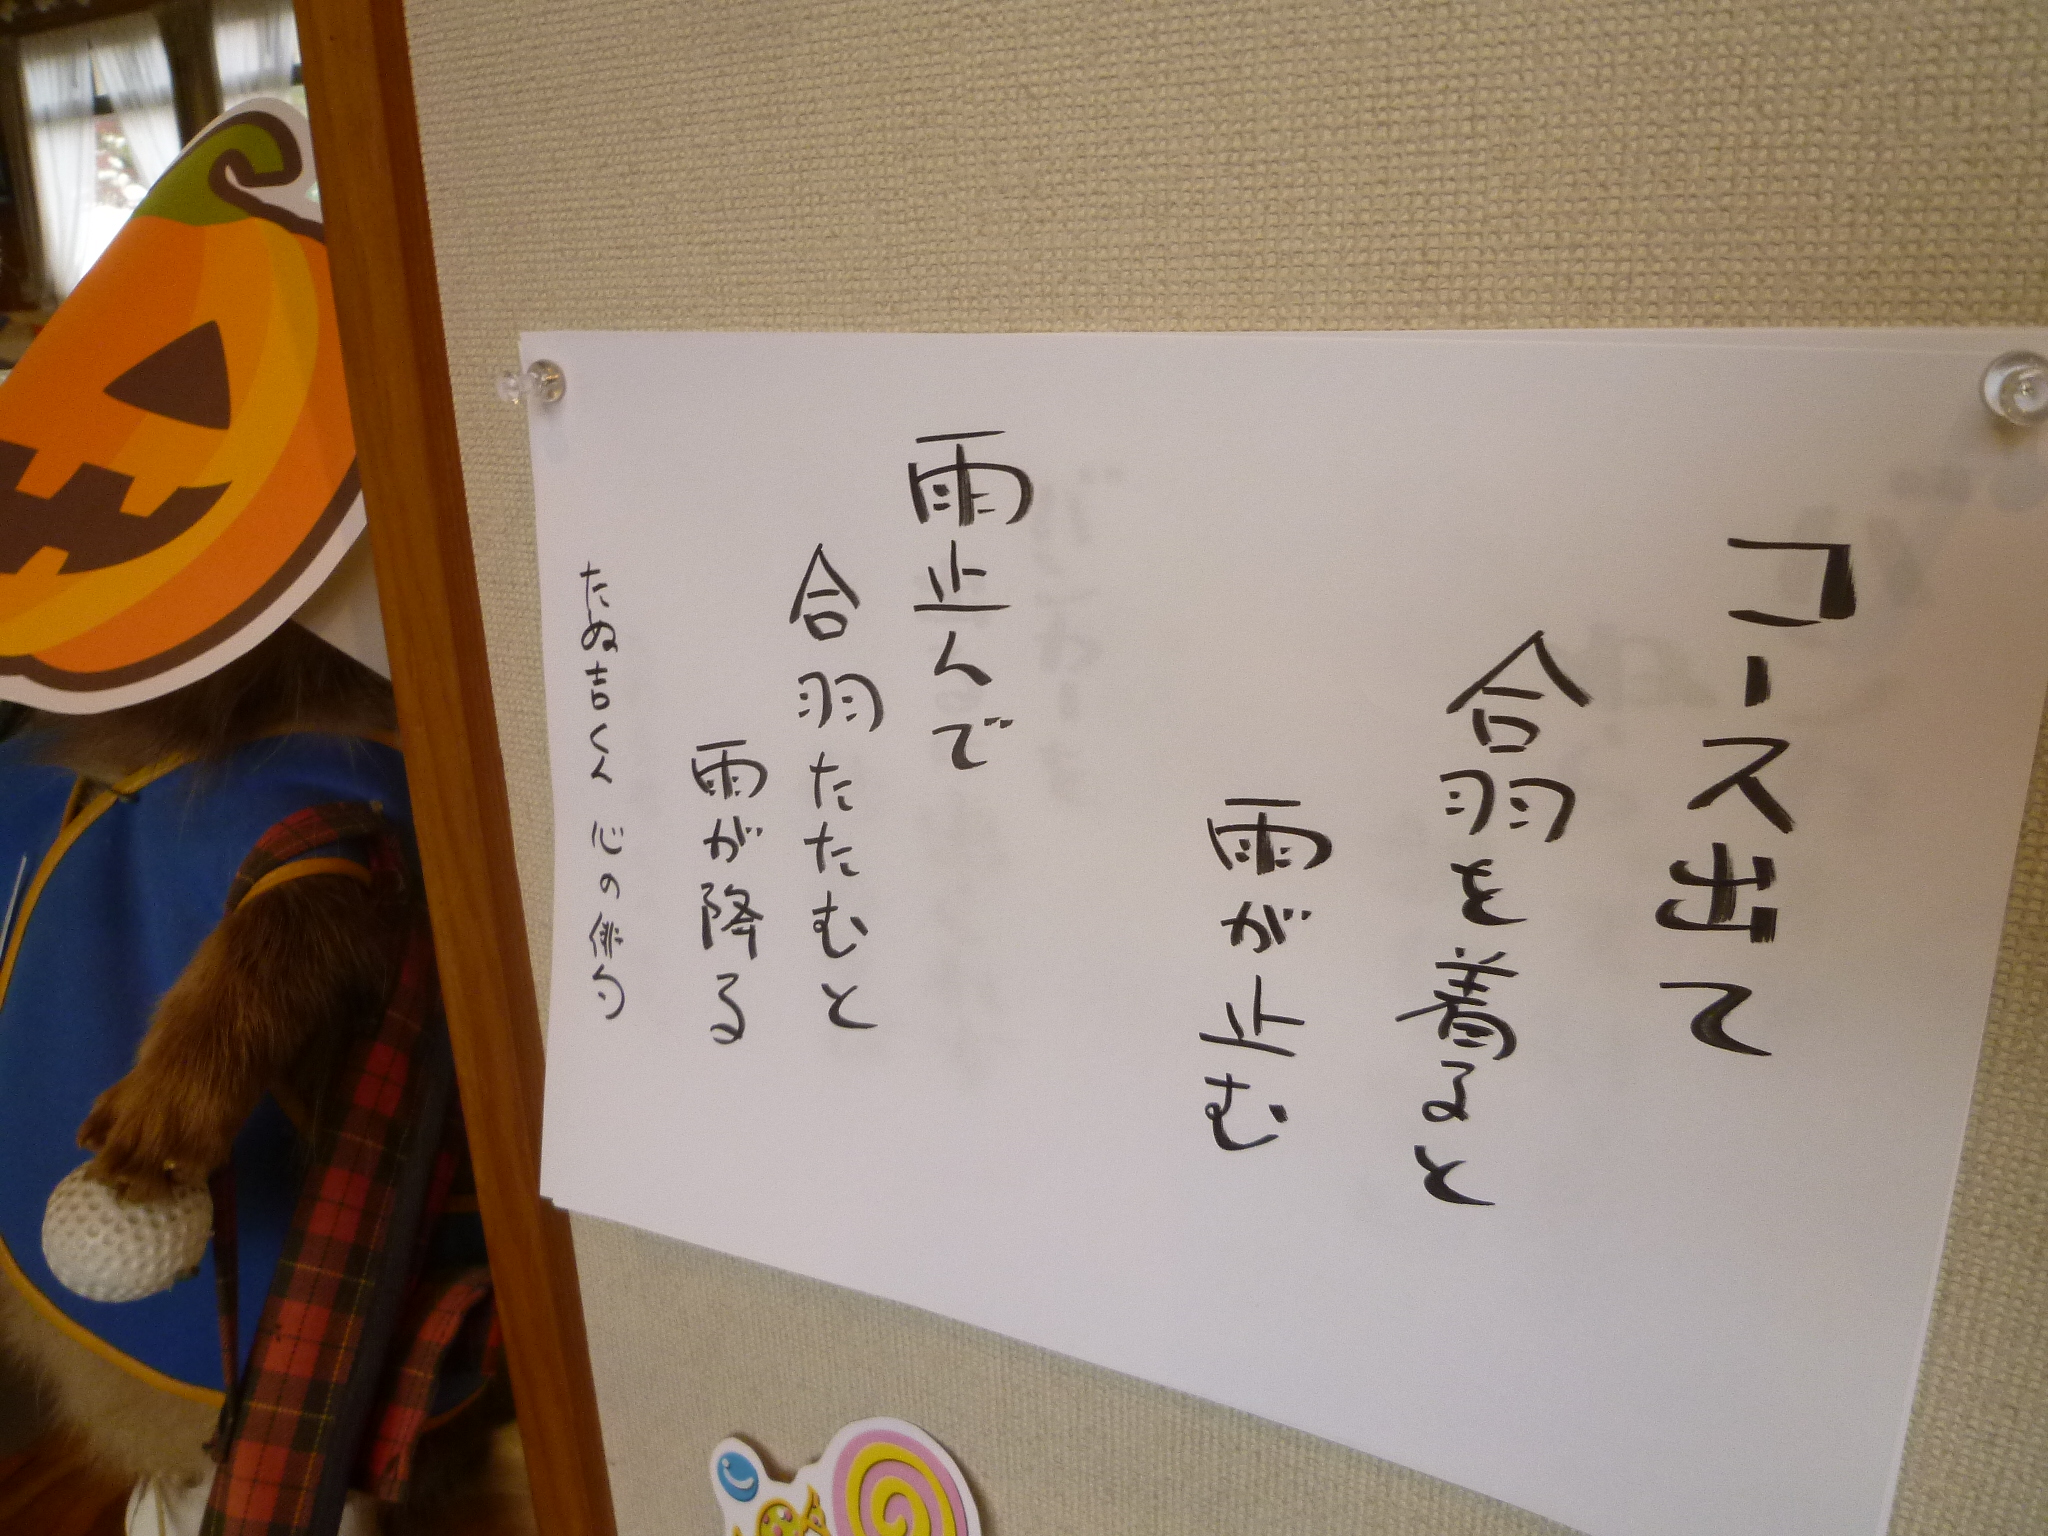 コース出て
合羽を着ると
雨が止む
雨止んで
合羽たたむと
雨が降る
たぬ吉くん 心の俳句